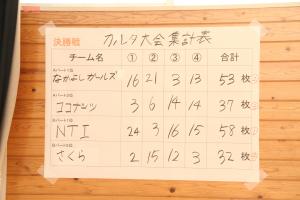 決勝戦 カルタ大会集計表
チーム名 ① ② ③ ④ 合計
Aパート1位
なかよしガールズ 16 21 3 13 53 枚
Aパート2位
ココナッツ 3 6 14 14 37 枚
Bパート1位
NTI 24 3 16 15 58 枚
Bパート2位
さくら 2 15 12 3 32 枚